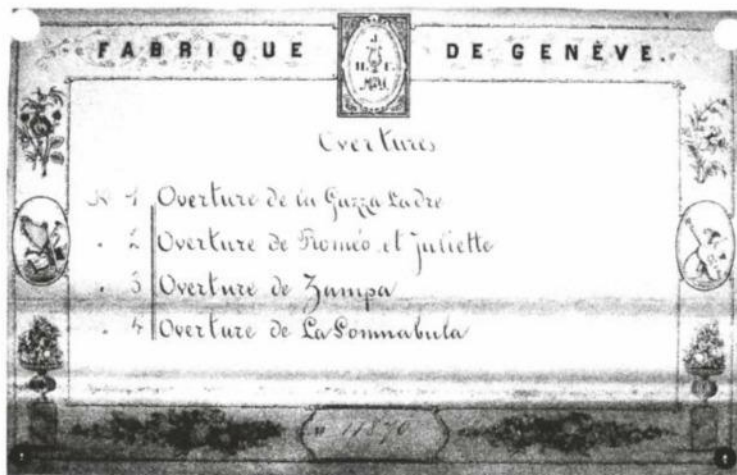 FABRIQUE DE GENÈVE.
Overtures
No 1 Overture de la Gazza Ladre
" 2 Overture de Roméo et Juliette
" 3 Overture de Zampa
" 4 Overture de La Somnabula
11876